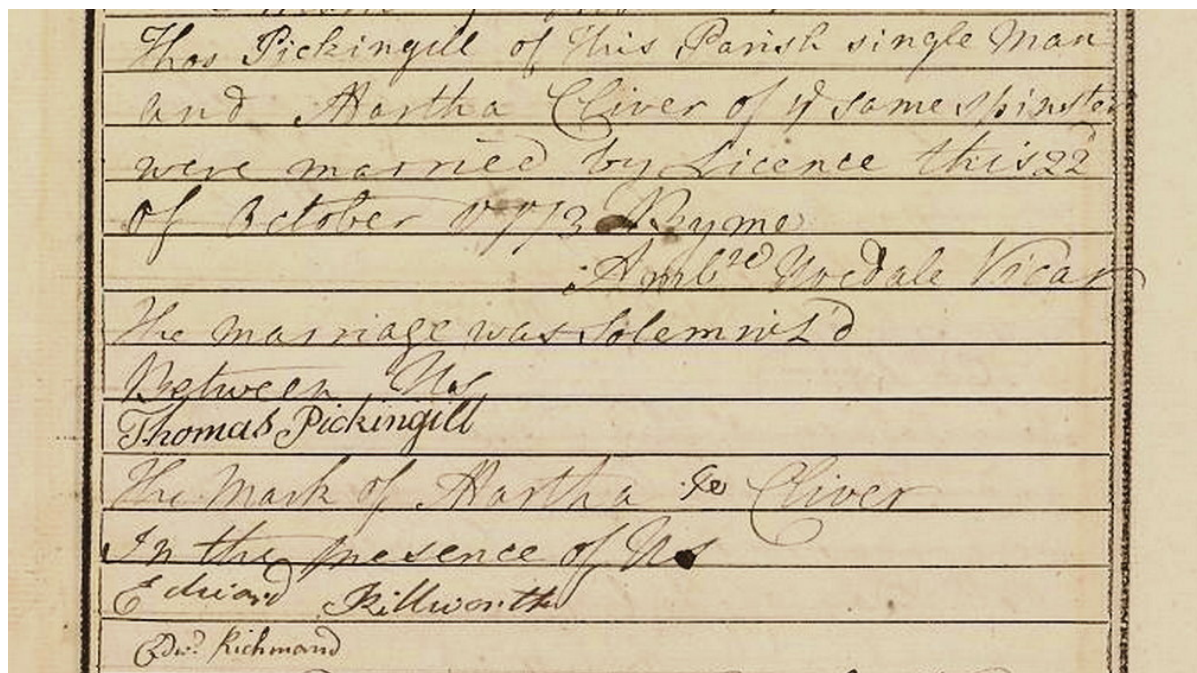 Thos Pickingill of this Parish single Man
and Martha Cliver of ye same spinster
were married by Licence this 22d
of October 1773 By me
Ambre Uvedale Vicar
The marriage was Solemniz'd
Between Us
Thomas Pickingill
The Mark of Martha Cliver
In the presence of Us
Edward Killworth
Edwd. Richmand